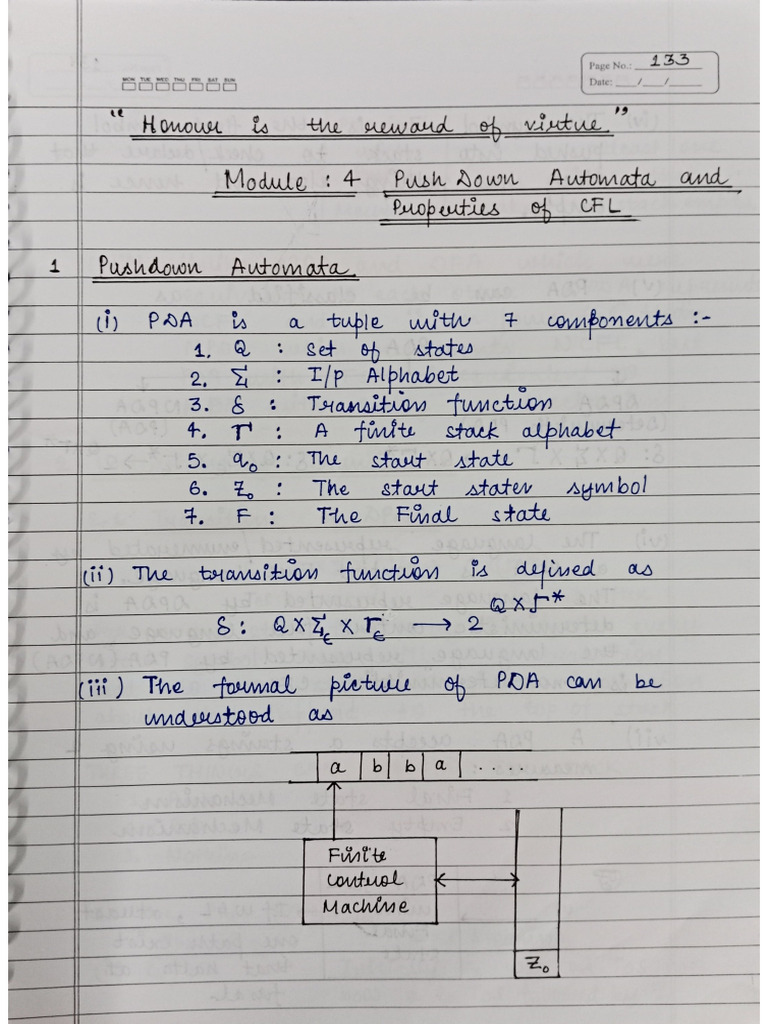 MON TUE WED THU FRI SAT SUN
Page No.: 133
Date: __/__/__
"Honour is the reward of virtue"
Module : 4 Push Down Automata and
Properties of CFL
1 Pushdown Automata
(i) PDA is a tuple with 7 components :-
1. Q : Set of states
2. Σ : I/p Alphabet
3. δ : Transition function
4. Γ : A finite stack alphabet
5. q₀ : The start state
6. Z₀ : The start stater symbol
7. F : The Final state
(ii) The transition function is defined as
δ : Q × Σ_ϵ × Γ_ϵ → 2^(Q × Γ*)
(iii) The formal picture of PDA can be
understood as
a b b a .....
Finite
Control
Machine
Z₀